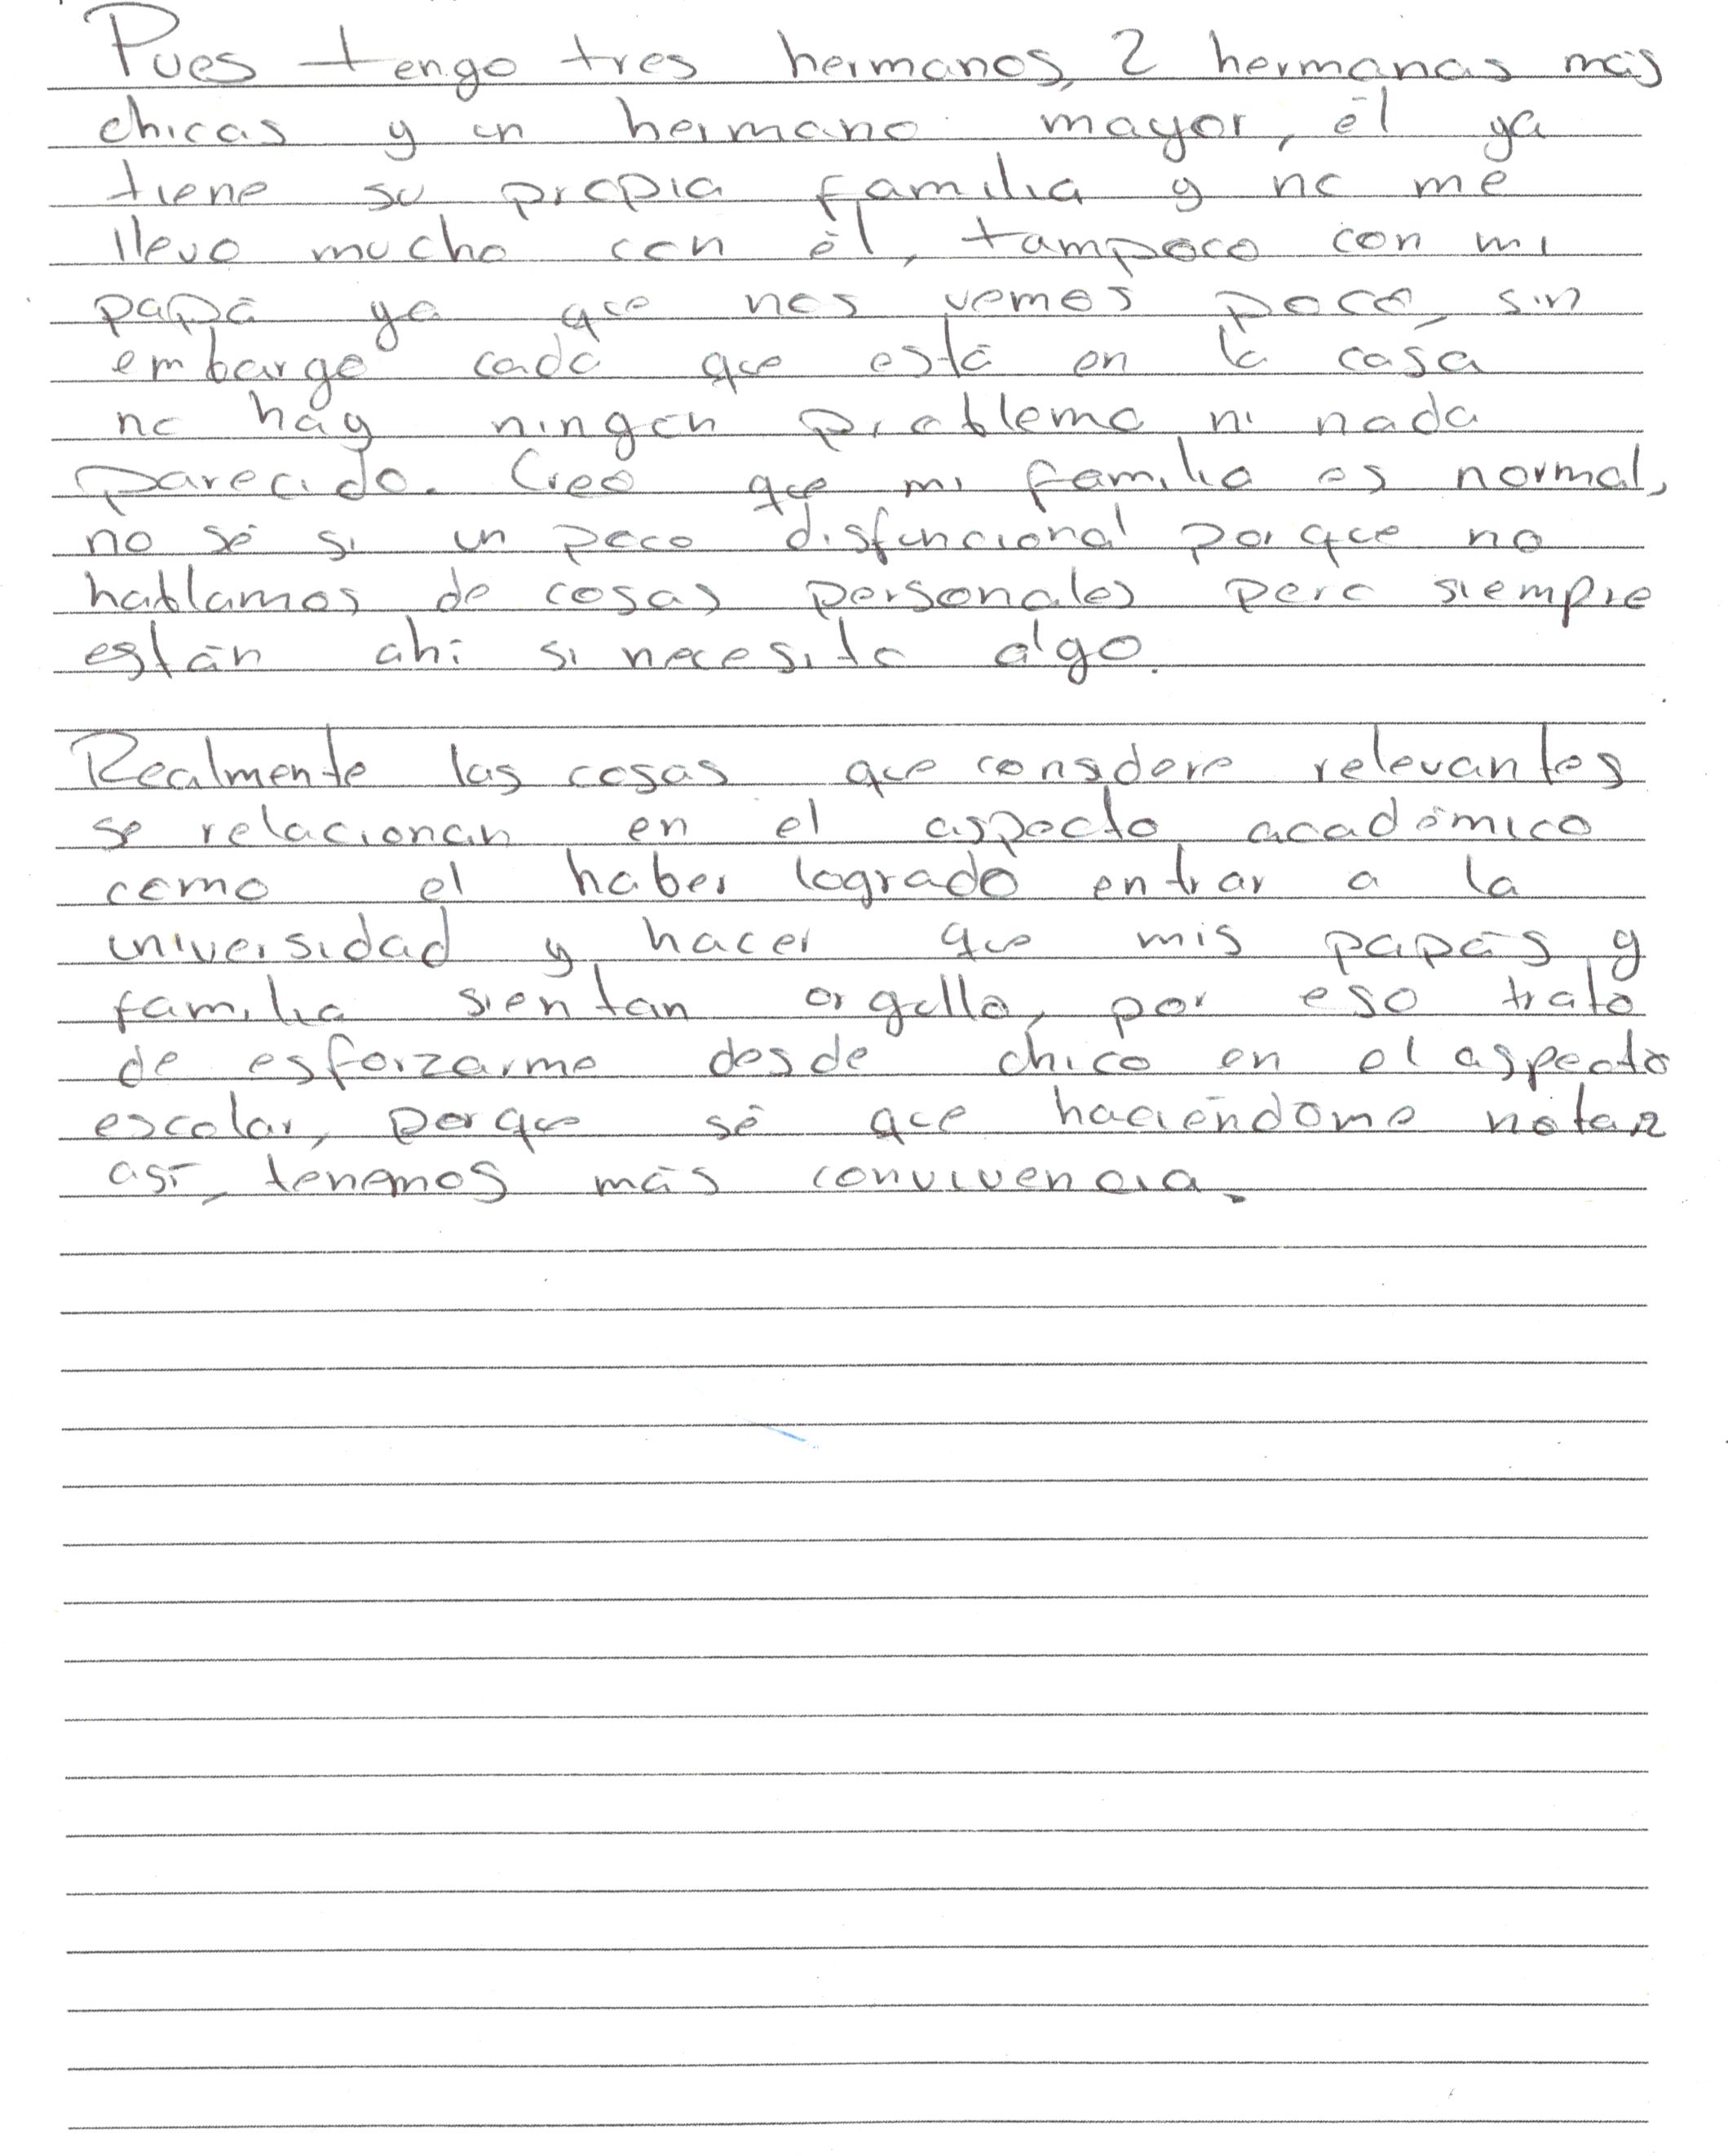 Pues tengo tres hermanos, 2 hermanas más
chicas y un hermano mayor, él ya
tiene su propia familia y no me
llevo mucho con él, tampoco con mi
papá ya que nos vemos poco, sin
embargo cada que está en la casa
no hay ningún problema ni nada
parecido. Creo que mi familia es normal,
no sé si un poco disfuncional porque no
hablamos de cosas personales pero siempre
están ahí si necesito algo.
Realmente las cosas que considero relevantes
se relacionan en el aspecto académico
como el haber logrado entrar a la
universidad y hacer que mis papás y
familia sientan orgullo, por eso trato
de esforzarme desde chico en el aspecto
escolar, porque sé que haciéndome notar
así, tenemos más convivencia.